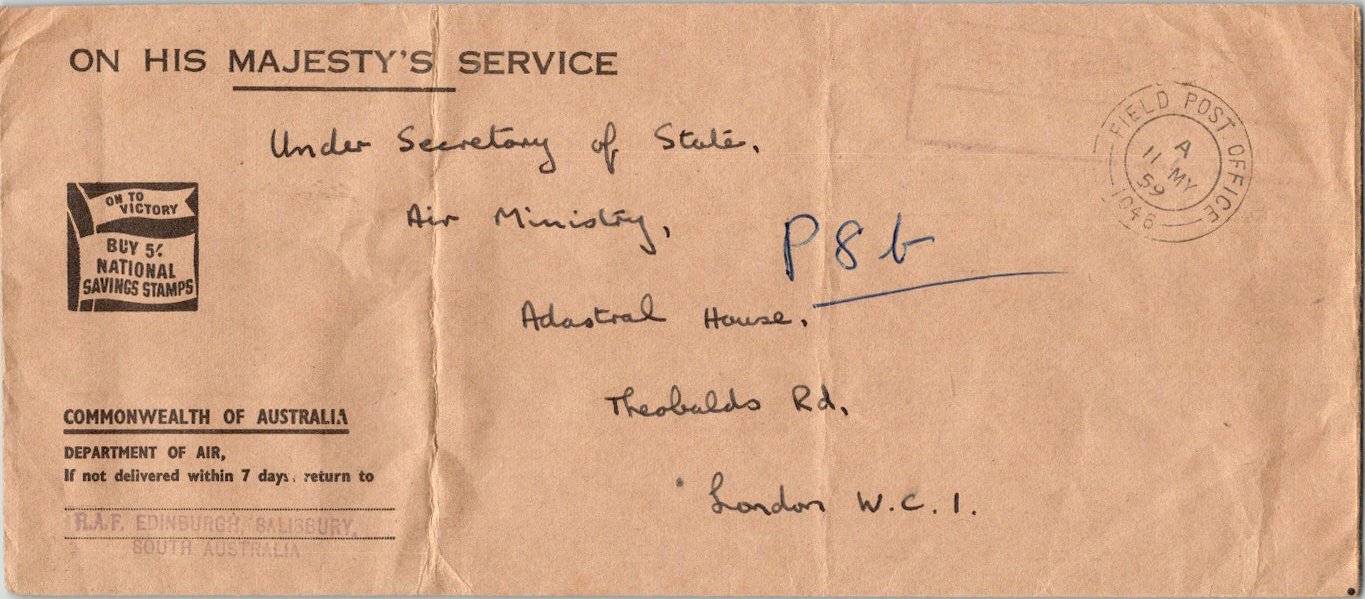 ON HIS MAJESTY'S SERVICE
Under Secretary of State,
Air Ministry,
Adastral House,
Theobalds Rd,
London W.C.1.
P8b
FIELD POST OFFICE
A
11 MY
59
1046
ON TO
VICTORY
BUY 5/-
NATIONAL
SAVINGS STAMPS
COMMONWEALTH OF AUSTRALIA
DEPARTMENT OF AIR,
If not delivered within 7 days, return to
R.A.F. EDINBURGH, SALISBURY,
SOUTH AUSTRALIA